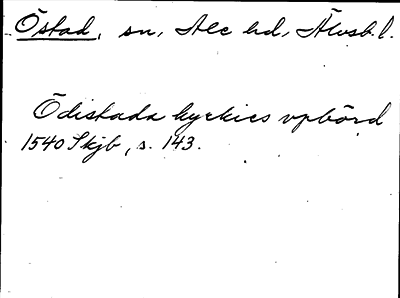 Östad, sn, Ale hd, Älvsb. l.
Ödistada kyrkies vpbörd
1540 Skjb, s. 143.